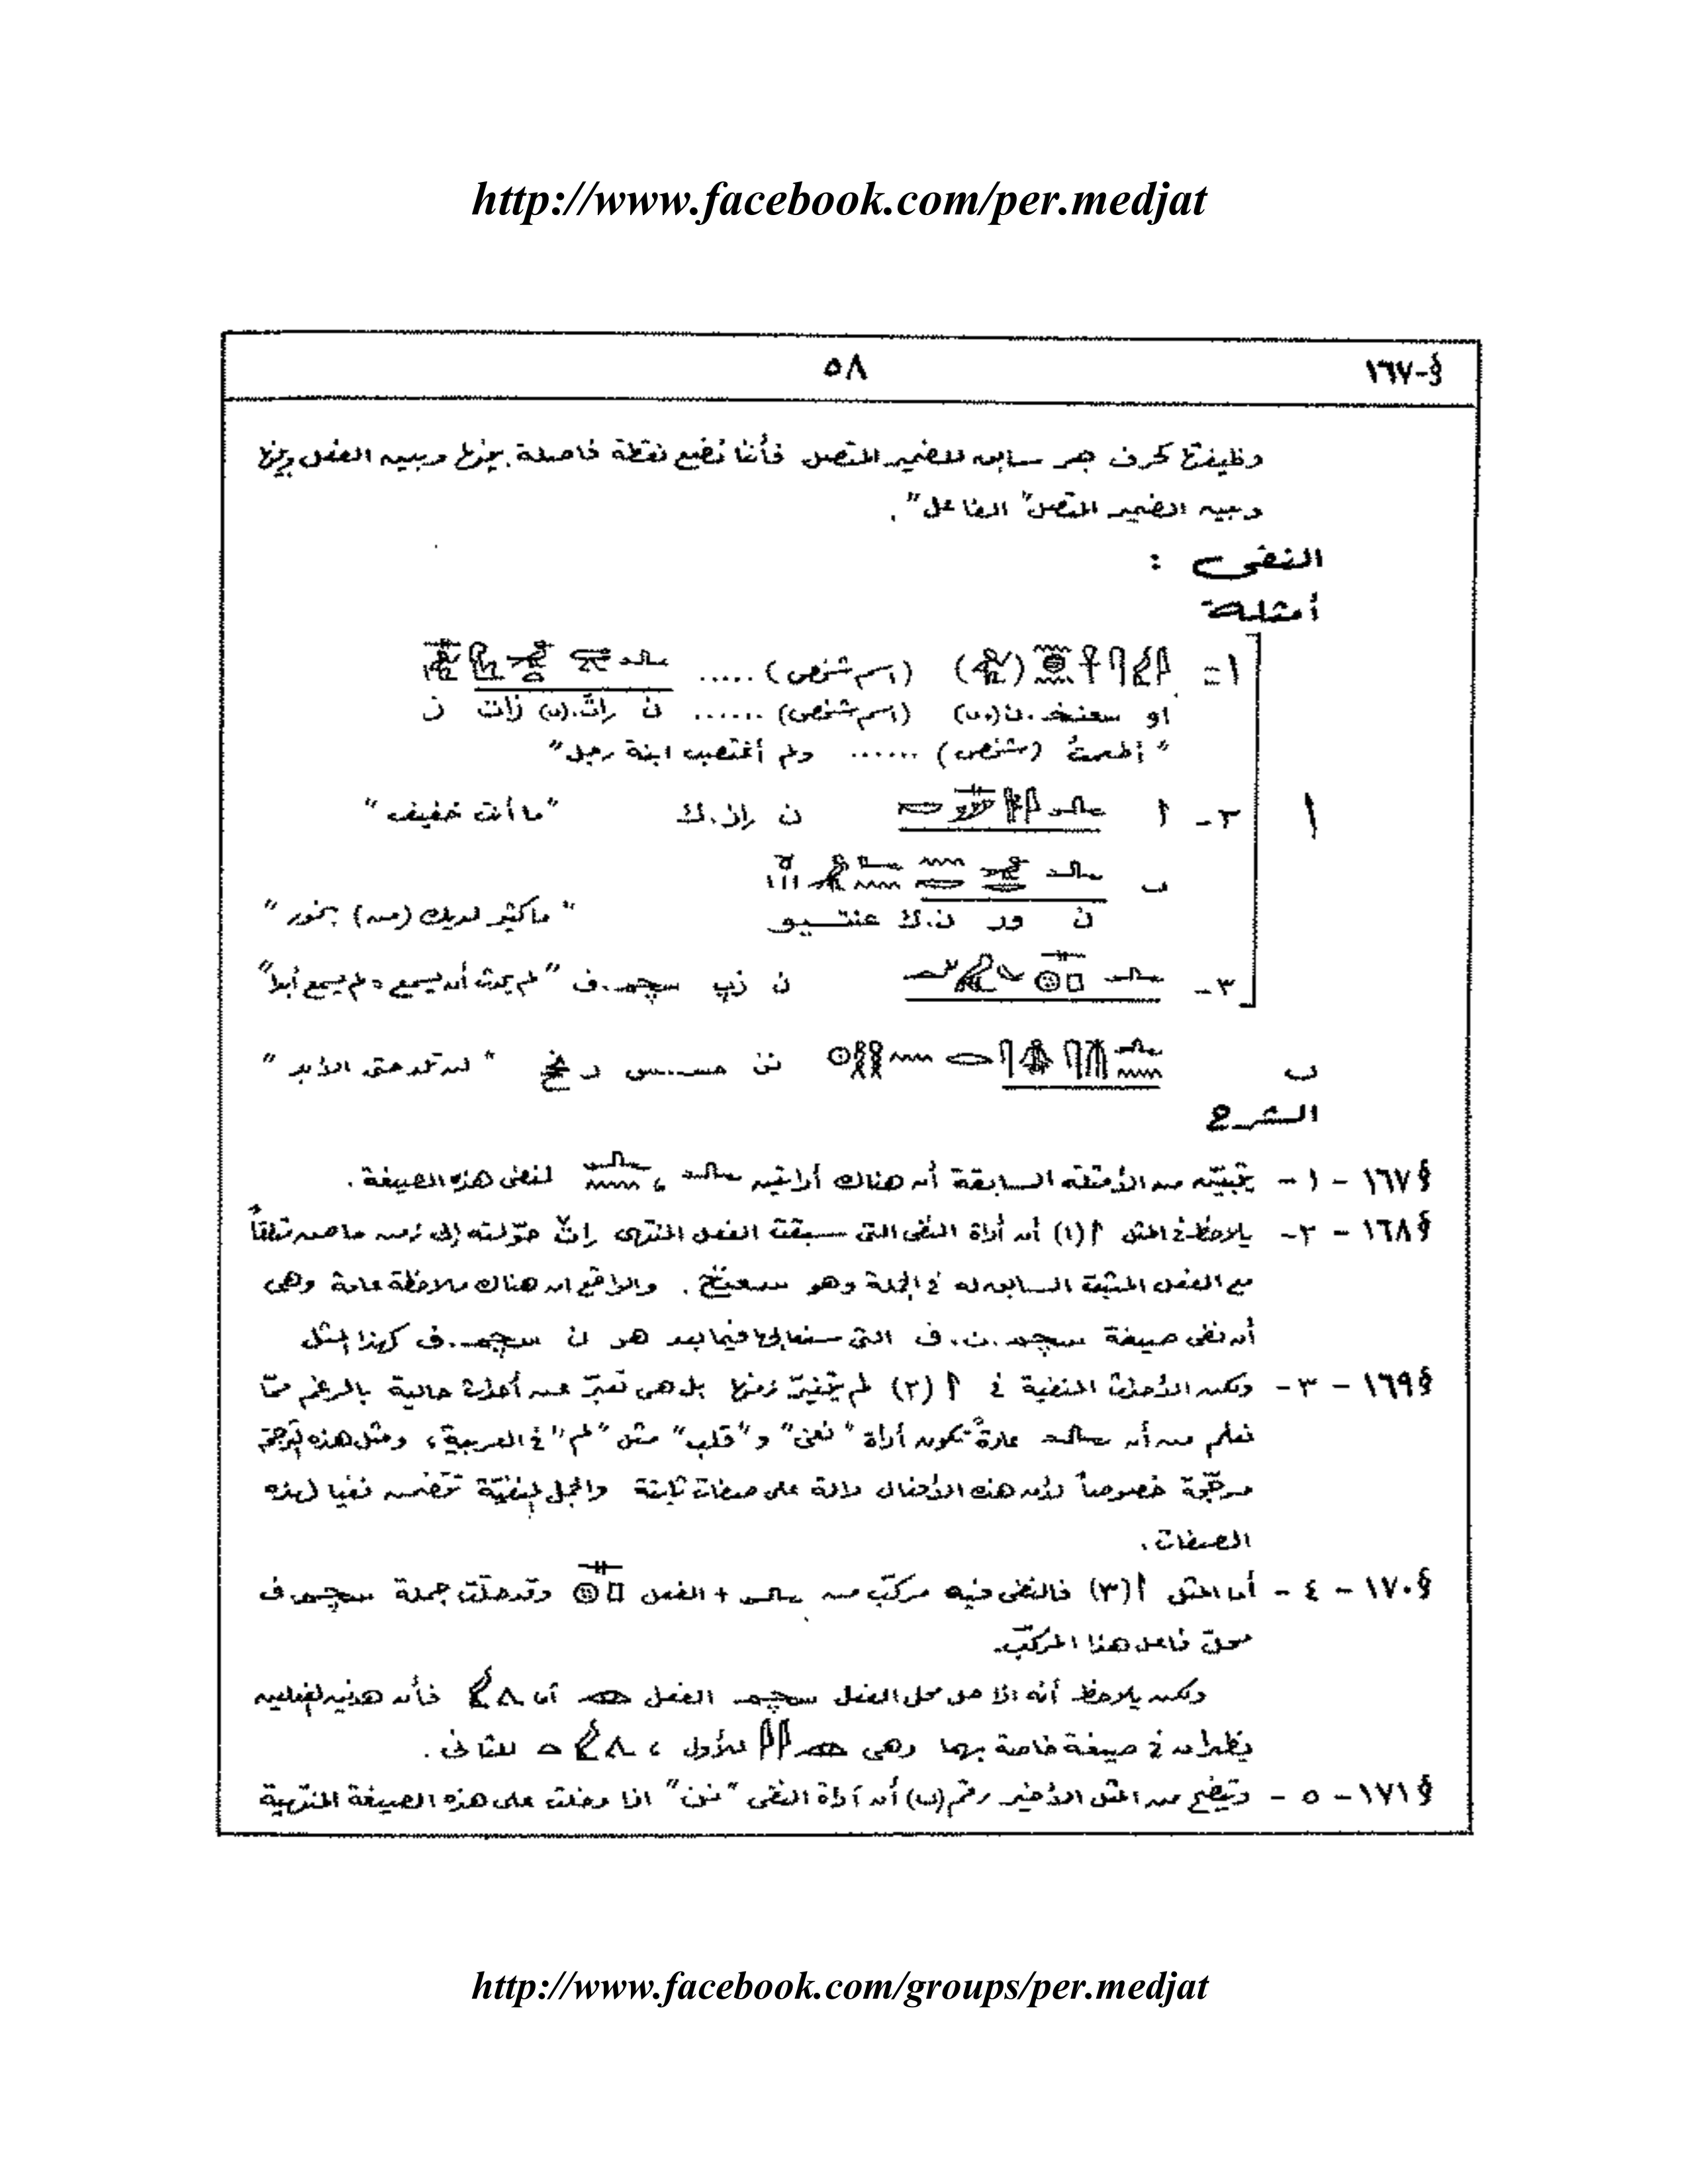 http://www.facebook.com/per.medjat
§-١٦٧ ٥٨
وظيفتها كحرف جر سابق للضمير المتصل فأننا نضع نقطة فاصلة بينها وبين الفعل وبينها
وبين الضمير المتصل "الفاعل".
النفى :
أمثلة
١= (اسم شخص) .....
او سعنخ.ن(ى) (اسم شخص) ...... ن (ى) ن
"أطعمتُ (شخص) ...... ولم أغتصب ابنة رجل"
أ ٢- أ ن .ك "ما أنت خفيف"
ب
ن ور ن.ك عنتيو "ما كثير لديك (من) بخور"
٣- ن زپ سچم.ف "لم يحدث أن يسمع، لم يسمع أبدا"
ب نن مس.س ر نحح "لن تلد حتى الأبد"
الشرح
§١٦٧ - ١ - يتبيّن من الأمثلة السابقة أن هناك أداتين ، لنفى هذه الصيغة.
§١٦٨ - ٢- يلاحظ فى المثل أ(١) أن أداة النفى التى سبقت الفعل المنتهى حوّلته إلى زمن ماض
مع الفعل المثبت السابق له فى الجملة وهو سعنخ. والواقع ان هناك ملاحظة عامة وهى
أن نفى صيغة سچم.ن.ف التى فيما بعد هو ن سچم.ف كهذا المثل
§١٦٩ - ٣- ولكن الأحداث المنفية فى أ(٢) لم يتغيّر زمنها بل هى تعبّر عن أحداث حالية بالرغم ممّا
نعلم من أن عادةً تكون أداة "نفى" و"قلب" مثل "لم" فى العربية، ومثل هذه الترجمة
مرجّحة خصوصاً لأن هذه الأفعال دالة على صفات ثابتة والجمل المنفيّة تتضمن نفيا لهذه
الصفات.
§١٧٠ - ٤ - أما المثل أ(٣) فالنفى فيه مركّب من + الفعل وقد حلّت جملة سچم.ف
محلّ فاعل هذا المركّب.
ولكن يلاحظ أنه اذا حل محل الفعل سچم الفعل أو فأن هذين الفعلين
يظهران فى صيغة خاصة بهما وهى للأول ، للثانى.
§١٧١ - ٥ - ويتضح من المثل الأخير رقم (ب) أن أداة النفى "نن" اذا دخلت على هذه الصيغة المنتهية
http://www.facebook.com/groups/per.medjat